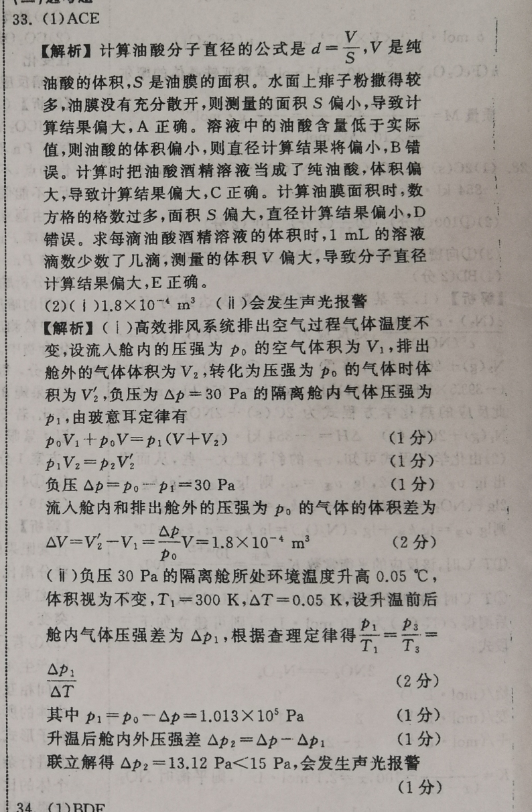 33. (1)ACE
【解析】计算油酸分子直径的公式是 d=V/S,V 是纯
油酸的体积,S 是油膜的面积。水面上痱子粉撒得较
多,油膜没有充分散开,则测量的面积 S 偏小,导致计
算结果偏大,A 正确。溶液中的油酸含量低于实际
值,则油酸的体积偏小,则直径计算结果将偏小,B 错
误。计算时把油酸酒精溶液当成了纯油酸,体积偏
大,导致计算结果偏大,C 正确。计算油膜面积时,数
方格的格数过多,面积 S 偏大,直径计算结果偏小,D
错误。求每滴油酸酒精溶液的体积时,1 mL 的溶液
滴数少数了几滴,测量的体积 V 偏大,导致分子直径
计算结果偏大,E 正确。
(2)(ⅰ)1.8×10⁻⁴ m³ (ⅱ)会发生声光报警
【解析】(ⅰ)高效排风系统排出空气过程气体温度不
变,设流入舱内的压强为 p₀ 的空气体积为 V₁,排出
舱外的气体体积为 V₂,转化为压强为 p₀ 的气体时体
积为 V₂′,负压为 Δp=30 Pa 的隔离舱内气体压强为
p₁,由玻意耳定律有
p₀V₁+p₀V=p₁(V+V₂) (1 分)
p₁V₂=p₂V₂′ (1 分)
负压 Δp=p₀-p₁=30 Pa (1 分)
流入舱内和排出舱外的压强为 p₀ 的气体的体积差为
ΔV=V₂′-V₁=Δp/p₀ V=1.8×10⁻⁴ m³ (2 分)
(ⅱ)负压 30 Pa 的隔离舱所处环境温度升高 0.05 ℃,
体积视为不变,T₁=300 K,ΔT=0.05 K,设升温前后
舱内气体压强差为 Δp₁,根据查理定律得 p₁/T₁=p₃/T₃=
Δp₁/ΔT (2 分)
其中 p₁=p₀-Δp=1.013×10⁵ Pa (1 分)
升温后舱内外压强差 Δp₂=Δp-Δp₁ (1 分)
联立解得 Δp₂=13.12 Pa<15 Pa,会发生声光报警
(1 分)
34. (1)BDE